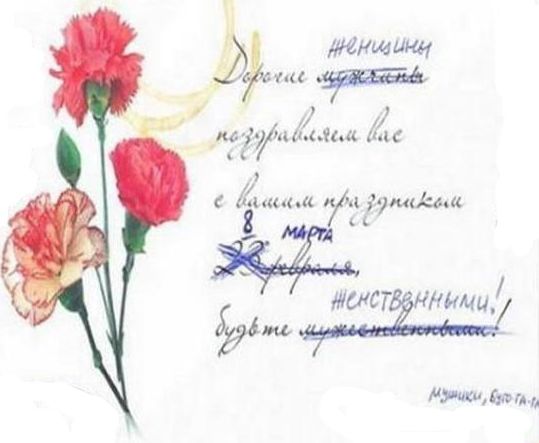 женщины
Дорогие мужчины
поздравляем вас
с вашим праздником
8 МАРТА
23 февраля,
ЖЕНСТВЕННЫМИ!
будьте мужественными!
Мужики, буго-га-га